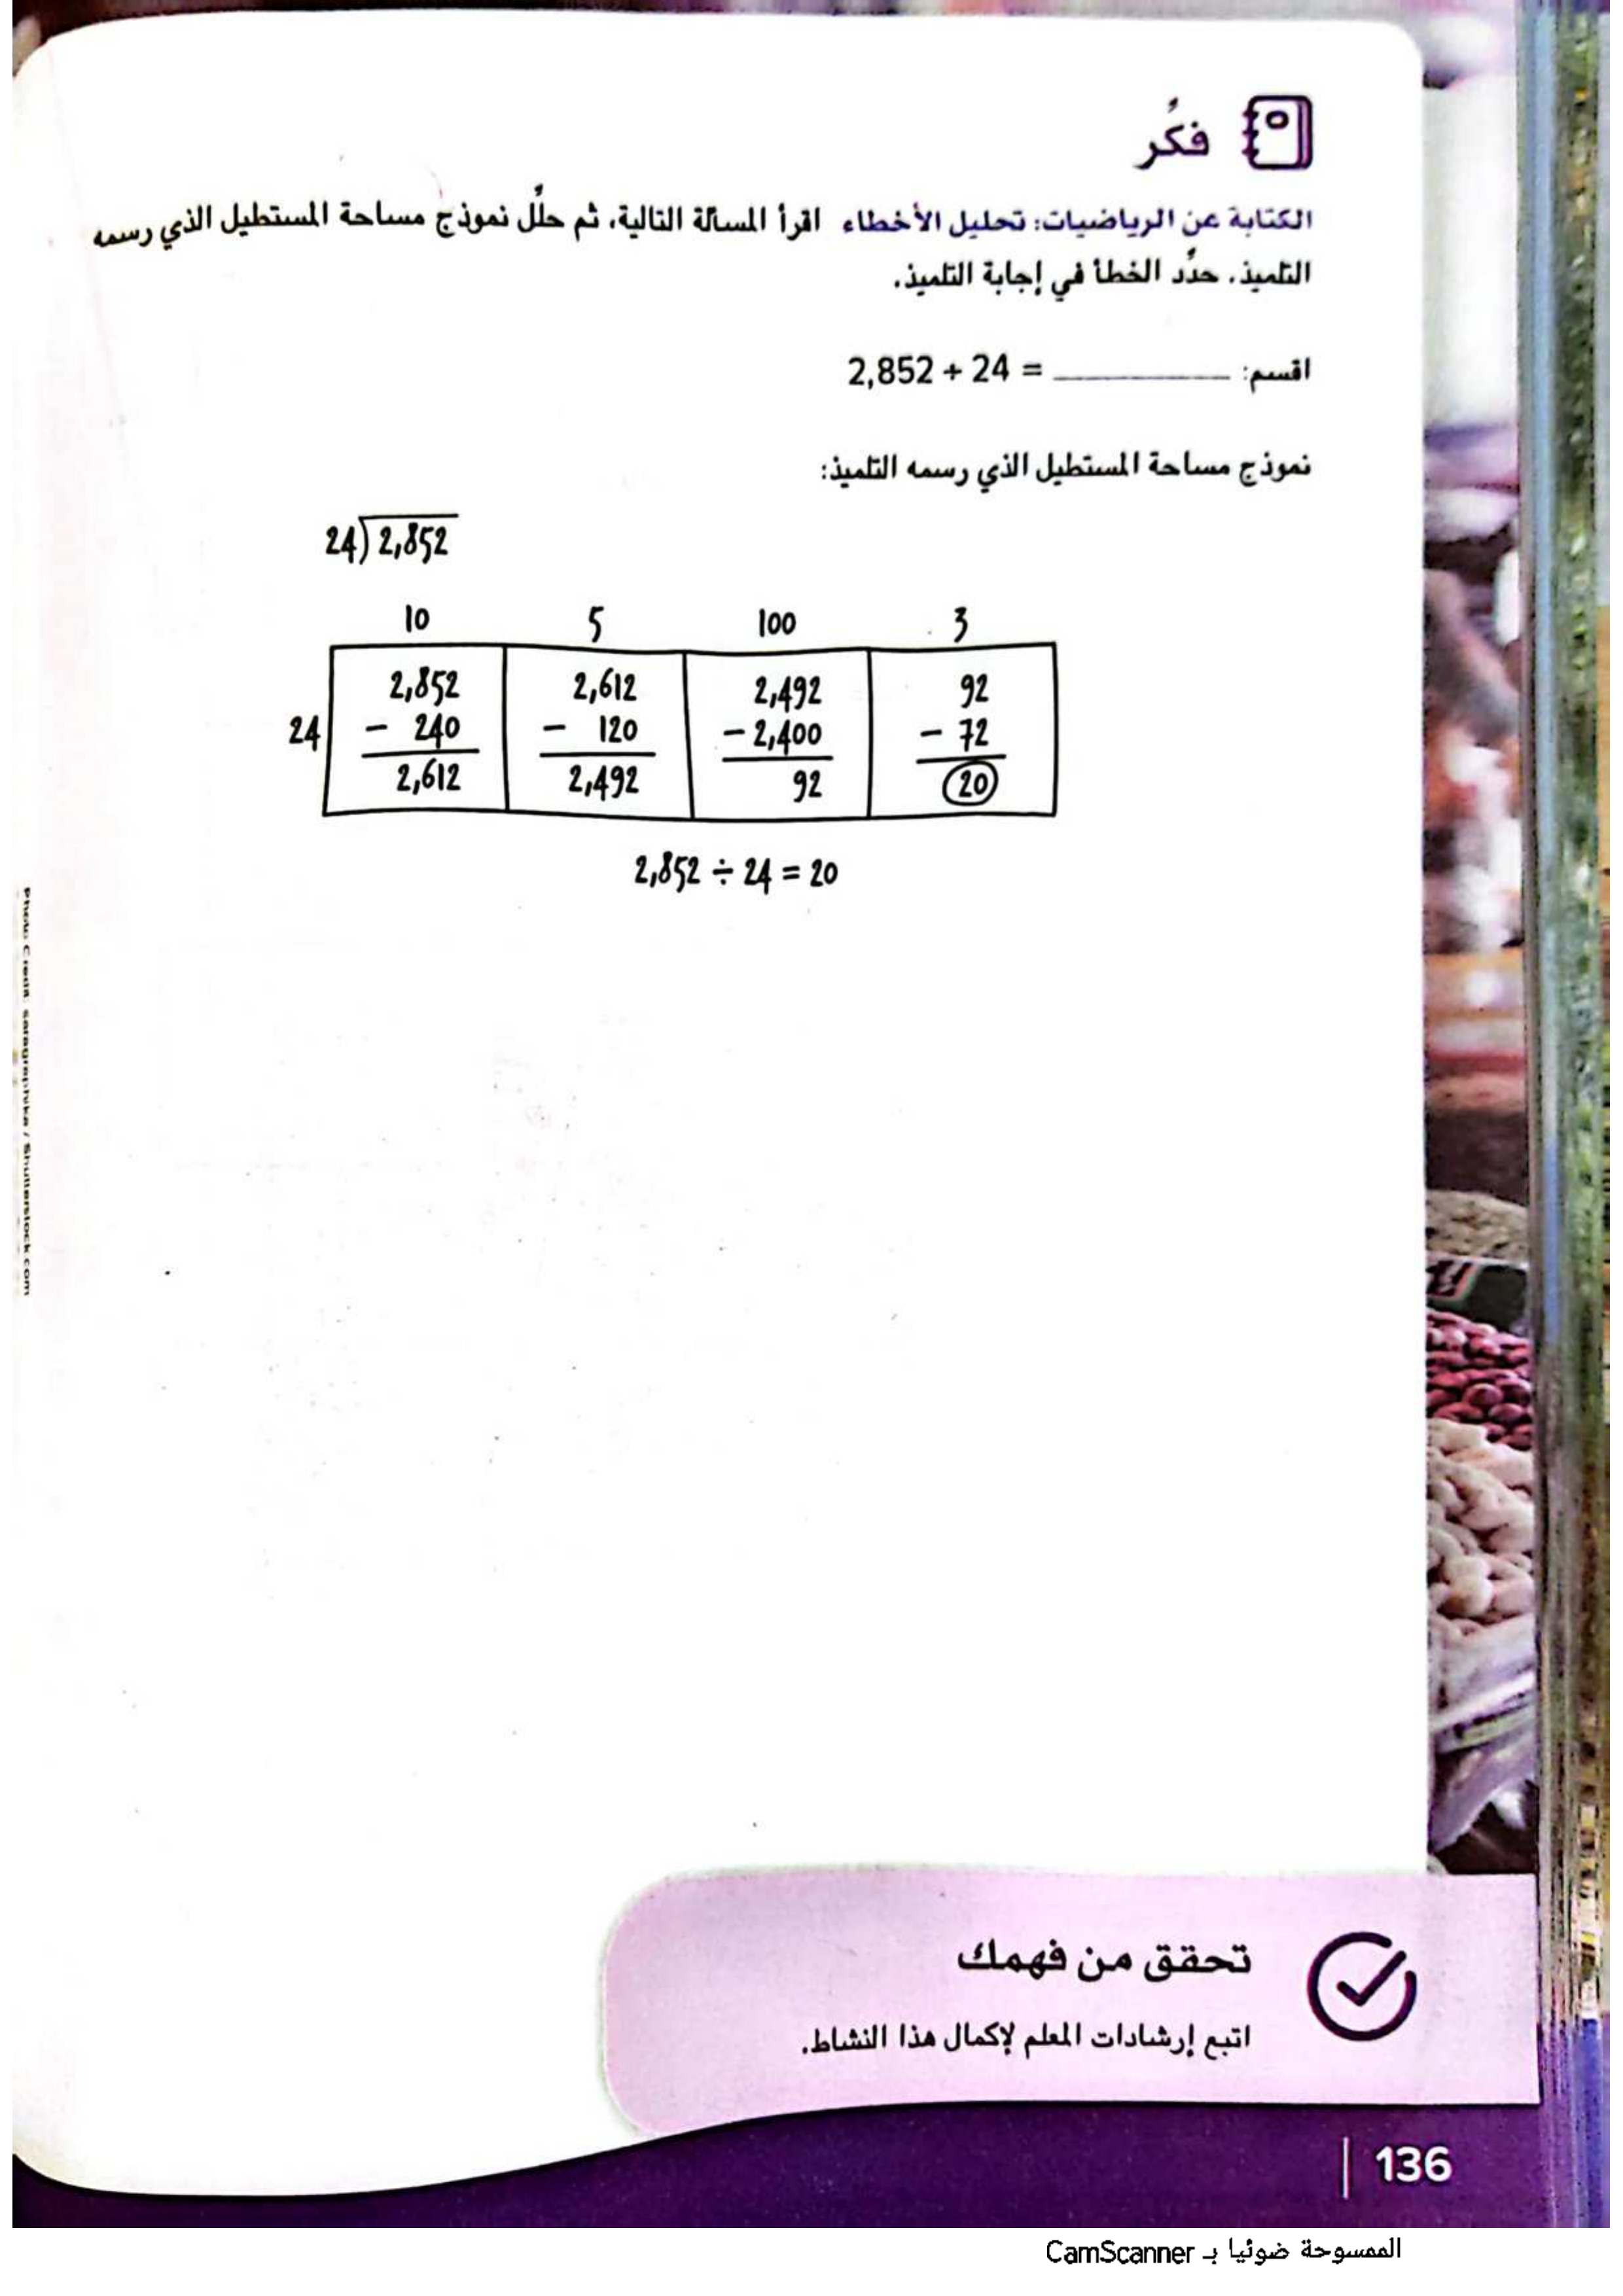 فكّر
الكتابة عن الرياضيات: تحليل الأخطاء اقرأ المسألة التالية، ثم حلّل نموذج مساحة المستطيل الذي رسمه
التلميذ. حدّد الخطأ في إجابة التلميذ.
اقسم: __________ = 2,852 ÷ 24
نموذج مساحة المستطيل الذي رسمه التلميذ:
24)2,852
10 5 100 3
2,852 2,612 2,492 92
24 - 240 - 120 - 2,400 - 72
2,612 2,492 92 20
2,852 ÷ 24 = 20
Photo Credit: saragraphika / Shutterstock.com
تحقق من فهمك
اتبع إرشادات المعلم لإكمال هذا النشاط.
136
الممسوحة ضوئيا بـ CamScanner